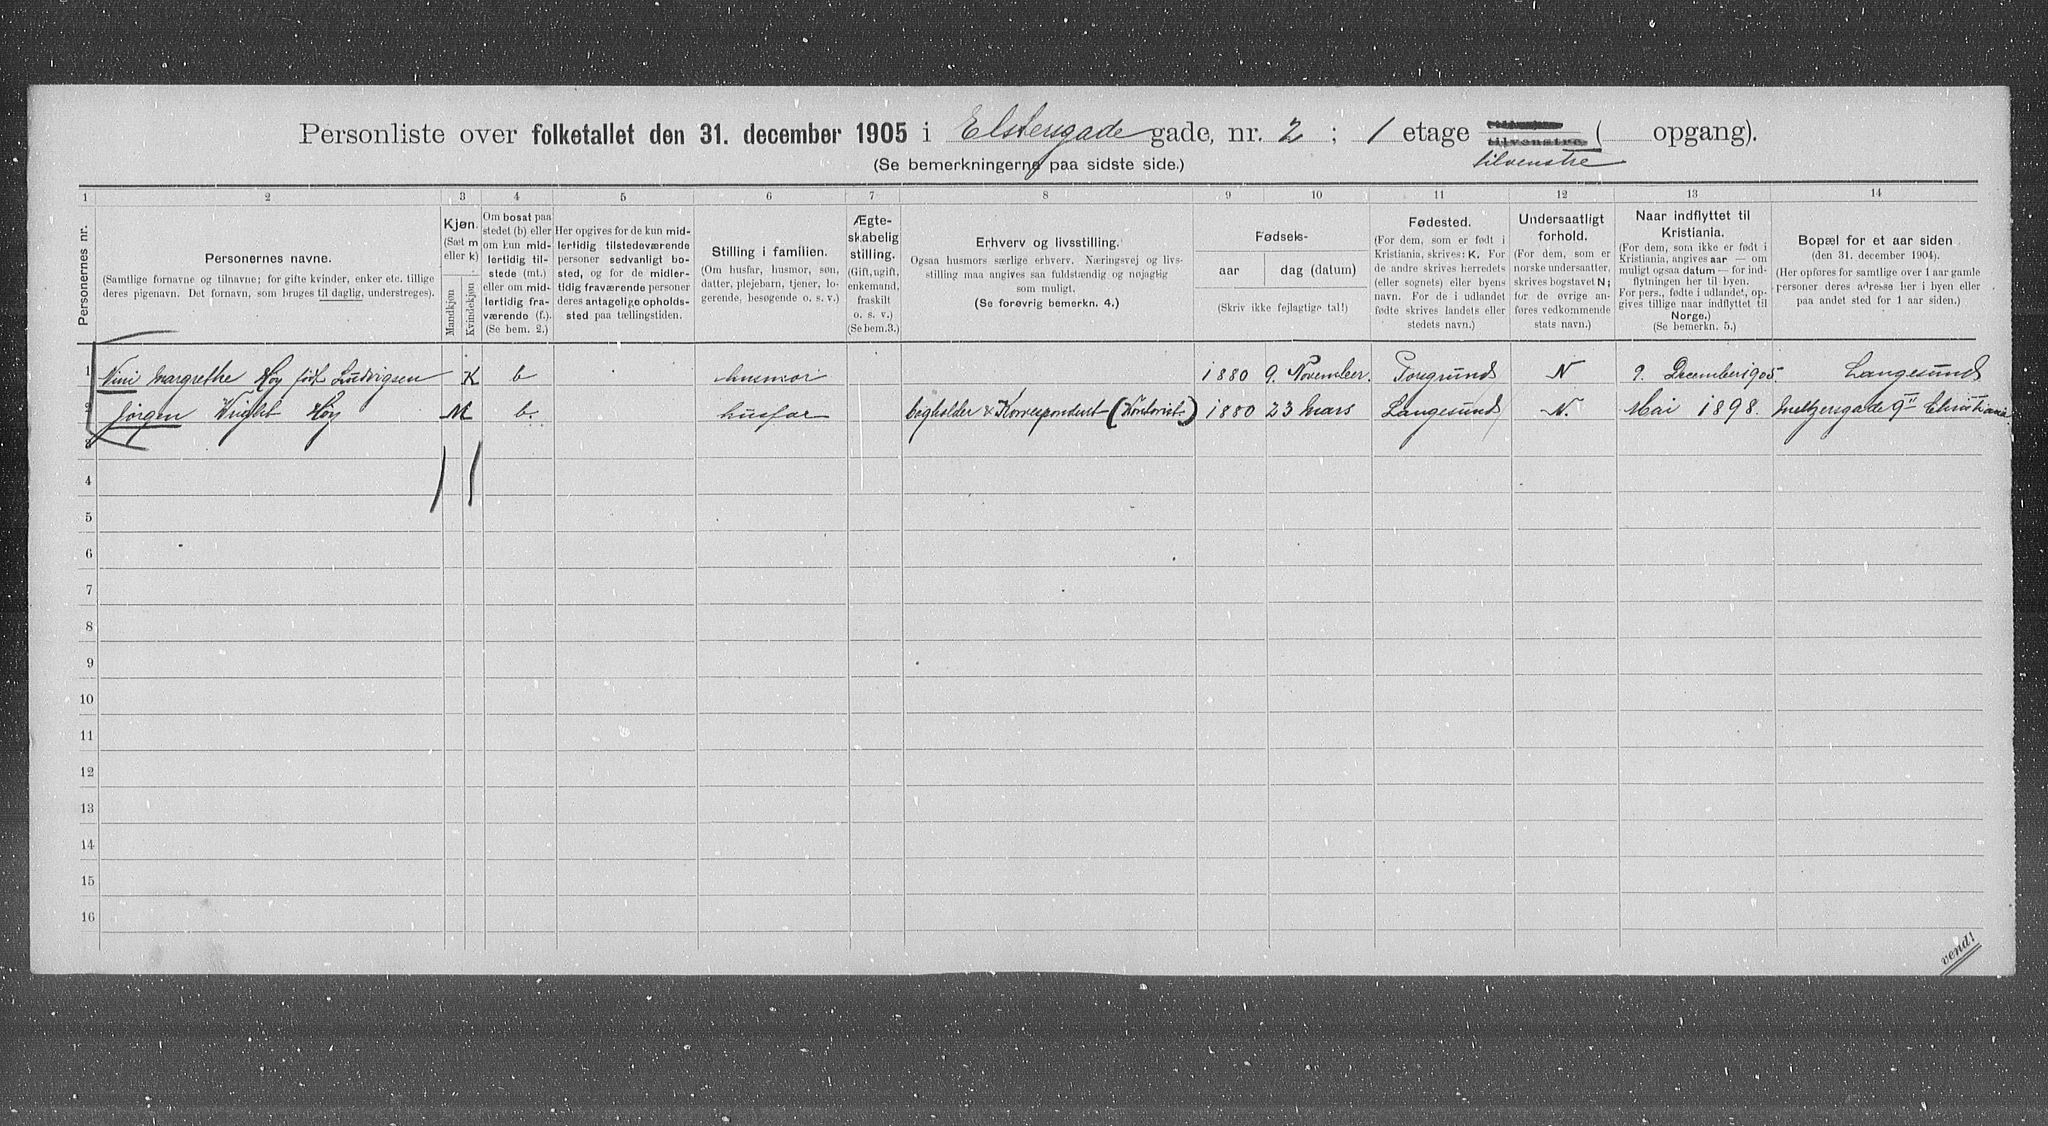 Personliste over folketallet den 31. december 1905 i Elstersgade gade, nr. 2 ; 1 etage tilvenstre ( opgang).
(Se bemerkningerne paa sidste side.) tilvenstre
1 2 3 4 5 6 7 8 9 10 11 12 13 14
Personernes nr.
Personernes navne.
(Samtlige fornavne og tilnavne; for gifte kvinder, enker etc. tillige
deres pigenavn. Det fornavn, som bruges til daglig, understreges).
Kjøn.
(Sæt m
eller k)
Mandkjøn
Kvindekjøn
Om bosat paa
stedet (b) eller
om kun mid-
lertidig til-
stede (mt.)
eller om mid-
lertidig fra-
værende (f.).
(Se bem. 2.)
Her opgives for de kun mid-
lertidig tilstedeværende
personer sedvanlig bo-
sted, og for de midler-
tidig fraværende personer
deres antagelige opholds-
sted paa tællingstiden.
Stilling i familien.
(Om husfar, husmor, søn,
datter, plejebarn, tjener, lo-
gerende, besøgende o. s. v.)
Ægte-
skabelig
stilling.
(Gift, ugift,
enkemand,
fraskilt
o. s. v.)
(Se bem. 3.)
Erhverv og livsstilling.
Ogsaa husmors særlige erhverv. Næringsvej og livs-
stilling maa angives saa fuldstændig og nøjagtig
som muligt.
(Se forøvrig bemerkn. 4.)
Fødsels-
aar dag (datum)
(Skriv ikke fejlagtige tal!)
Fødested.
(For dem, som er født i
Kristiania, skrives: K. For
de andre skrives herredets
(eller sognets) eller byens
navn. For de i udlandet
fødte skrives landets eller
stedets navn.)
Undersaatligt
forhold.
(For dem, som er
norske undersaatter,
skrives bogstavet N;
for de øvrige an-
føres vedkommende
stats navn.)
Naar indflyttet til
Kristiania.
(For dem, som ikke er født i
Kristiania, angives aar — om
muligt ogsaa datum — for ind-
flytningen her til byen.
For pers., fødte i udlandet, op-
gives tillige naar indflyttet til
Norge.)
(Se bemerkn. 5.)
Bopæl for et aar siden
(den 31. december 1904).
(Her opføres for samtlige over 1 aar gamle
personer deres adresse her i byen eller
paa andet sted for 1 aar siden.)
1 Nini Margrethe Høy født Ludvigsen K b husmor 1880 9. November. Porsgrund N 9. December 1905. Langesund
2 Jørgen Wright Høy M b. husfar bogholder & Korrespondent (Kontorist) 1880 23 Mars Langesund N. Mai 1898. Meltzersgade 9 II Christiania.
3
4
5
6
7
8
9
10
11
12
13
14
15
16
vend!